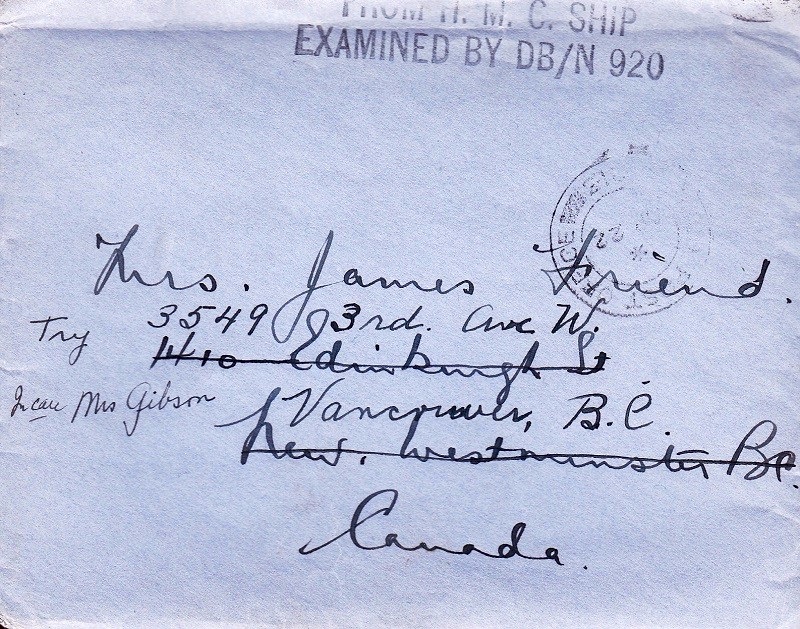 FROM H. M. C. SHIP
EXAMINED BY DB/N 920
22
Mrs. James Friend.
3549 W 3rd. Ave W.
Try
1410 Edinburgh St
In care Mrs Gibson
Vancouver, B.C.
New. Westminster BC.
Canada.